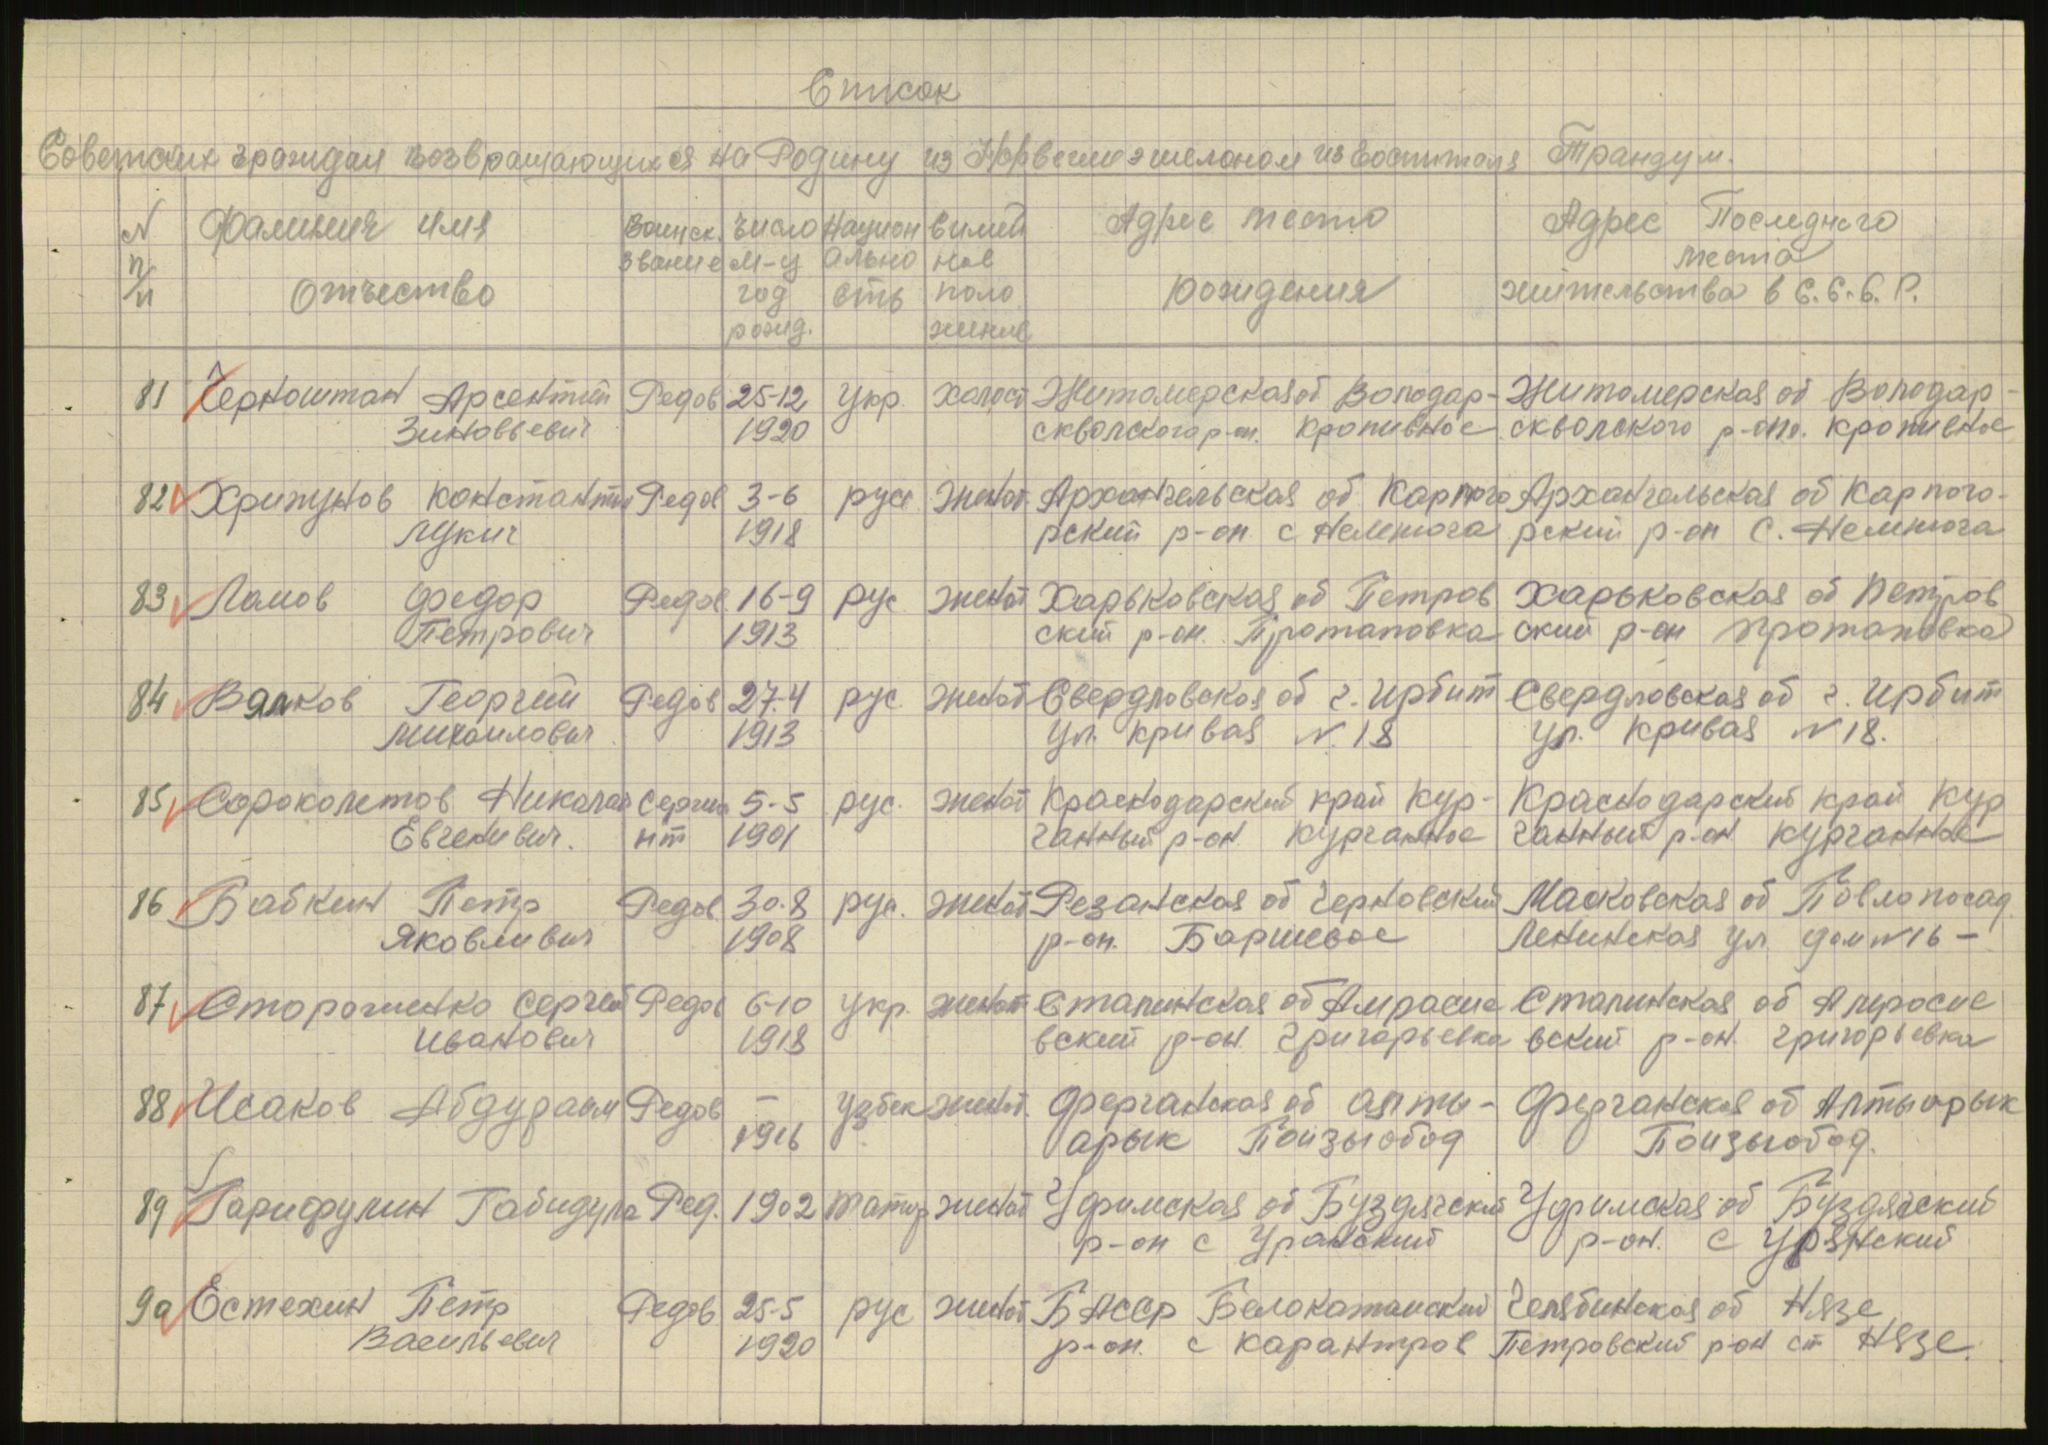 Список
Советских граждан возвращающихся на Родину из Норвегии эшелоном из госпиталя Трандум.
N п/п | Фамилия Имя Отчество | Воинск. звание | Число м-ц год рожд. | Национ ально сть | Симей ное поло жение | Адрес место Рождения | Адрес Последнего места жительства в С.С.С.Р.
81 Черноштан Арсентий Редов 25-12 Укр. холост Житомерская об Володар- Житомерская об Володар-
Зиновьевич 1920 скволского р-он. Кропивное скволского р-он. Кропивное
82 Хрипунов Константин Редов 3-6 русс женат Архангельская об Карпого Архангельская об Карпого-
Лукич 1918 рский р-он с Немнюга рский р-он С. Немнюга
83 Ломов Федор Редов 16-9 рус женат Харьковская об Петров Харьковская об Петров
Петрович 1913 ский р-он. Протаповка ский р-он Протаповка
84 Вялков Георгий Редов 27-4 рус. женат Свердловская об г. Ирбит Свердловская об г. Ирбит
Михаилович 1913 ул. Кривая N 18 ул. Кривая N 18.
85 Сороколетов Николай Сержа 5-5 рус. женат Краснодарский край Кур- Краснодарский край Кур
Евгенивич. нт 1901 ганный р-он Курганное ганный р-он Курганное
86 Бабкин Петр Редов 30-8 рус. женат Резанская об Черновский Масковская об Повлопосад
Яковливич 1908 р-он. Боршевое Ленинская ул дом N 16 -
87 Стороженко Сергей Редов 6-10 укр. женат Сталинская об Амвросие Сталинская об Амвросие
Иванович 1918 вский р-он Григорьевка вский р-он. Григорьевка
88 Исаков Абдураим Редов — Узбек женат. Ферганская об алты- Ферганская об Алтыарык
1916 арык Поизыобод Поизыобод.
89 Гарифулин Габидула Ряд. 1902 Татар женат Уфимская об Буздягский Уфимская об Буздягский
р-он с Уранский р-он. с Урянский
90 Естехин Петр Редов 25-5 рус женат БАССР Белокатайский Челябинская об Нязе
Васильевич 1920 р-он. с Карантров Петровский р-он ст Нязе.